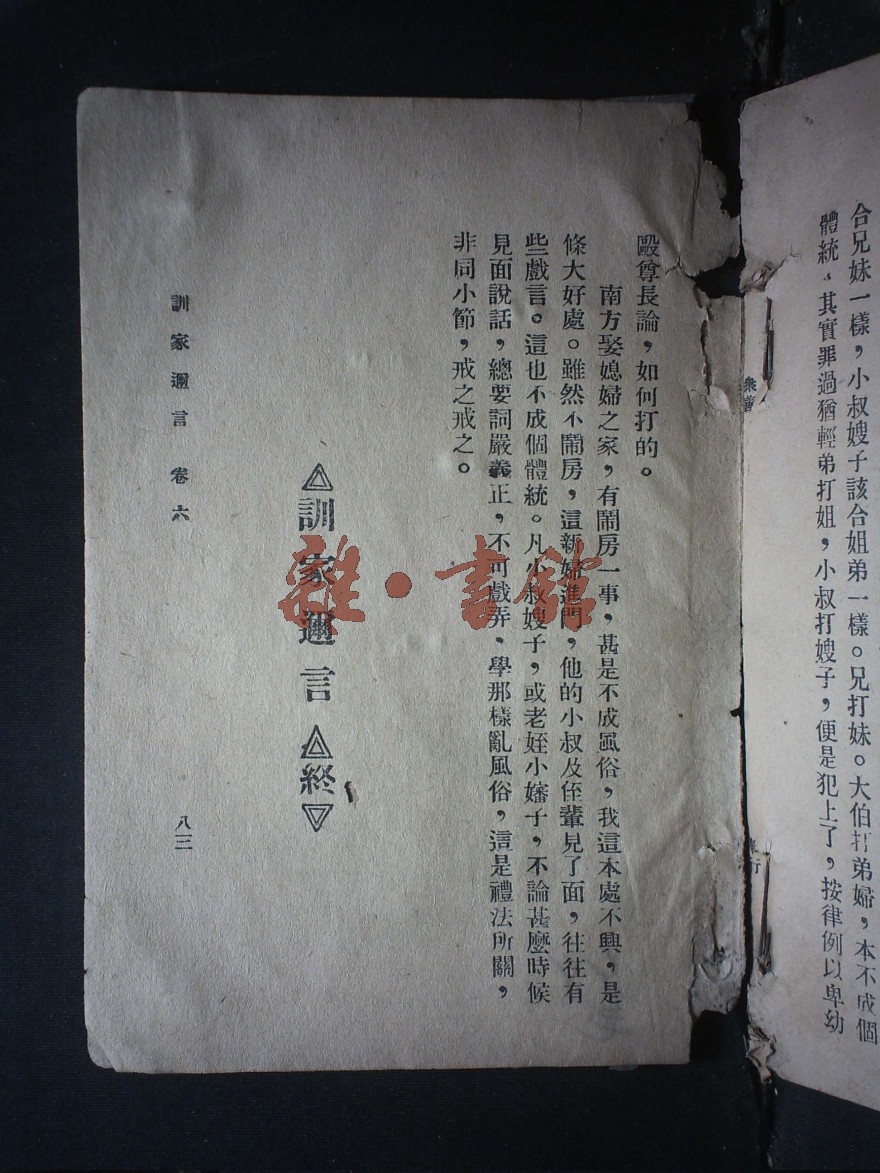 合兄妹一樣，小叔嫂子該合姐弟一樣。兄打妹。大伯打弟婦，本不成個
體統，其實罪過猶輕弟打姐，小叔打嫂子，便是犯上了，按律例以卑幼
毆尊長論，如何打的。
南方娶媳婦之家，有鬧房一事，甚是不成風俗，我這本處不興，是
條大好處。雖然不鬧房，這新婦進門，他的小叔及侄輩見了面，往往有
些戲言。這也不成個體統。凡小叔嫂子，或老姪小嬸子，不論甚麼時候
見面說話，總要詞嚴義正，不可戲弄，學那樣亂風俗，這是禮法所關，
非同小節，戒之戒之。
△訓家邇言△終▽
訓家邇言 卷六 八三
雜·書館